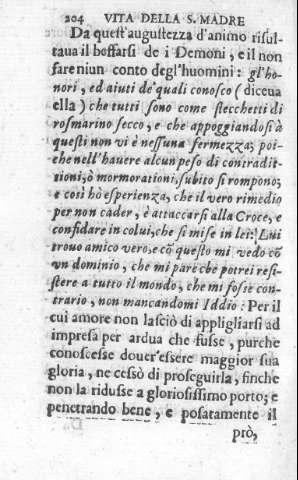 204 VITA DELLA S. MADRE
Da quest'augustezza d'animo risul-
taua il beffarsi de i Demoni, e il non
fare niun conto degl'huomini: gl'ho-
nori, ed aiuti de' quali conosco (diceua
ella) che tutti sono come stecchetti di
rosmarino secco, e che appoggiandosi à
questi non vi è nessuna fermezza; poi-
che nell'hauere alcun peso di contradit-
tioni, ò mormorationi, subito si rompono;
e così hò esperienza, che il vero rimedio
per non cader, è attaccarsi alla Croce, e
confidare in colui, che si mise in lei: Lui
trouo amico vero, e cō questo mi vedo cō
vn dominio, che mi pare che potrei resi-
stere a tutto il mondo, che mi fosse con-
trario, non mancandomi Iddio: Per il
cui amore non lasciò di appligliarsi ad
impresa per ardua che fusse, purche
conoscesse douer'essere maggior sua
gloria, ne cessò di proseguirla, finche
non la ridusse a gloriosissimo porto; e
penetrando bene, e posatamente il
prò,